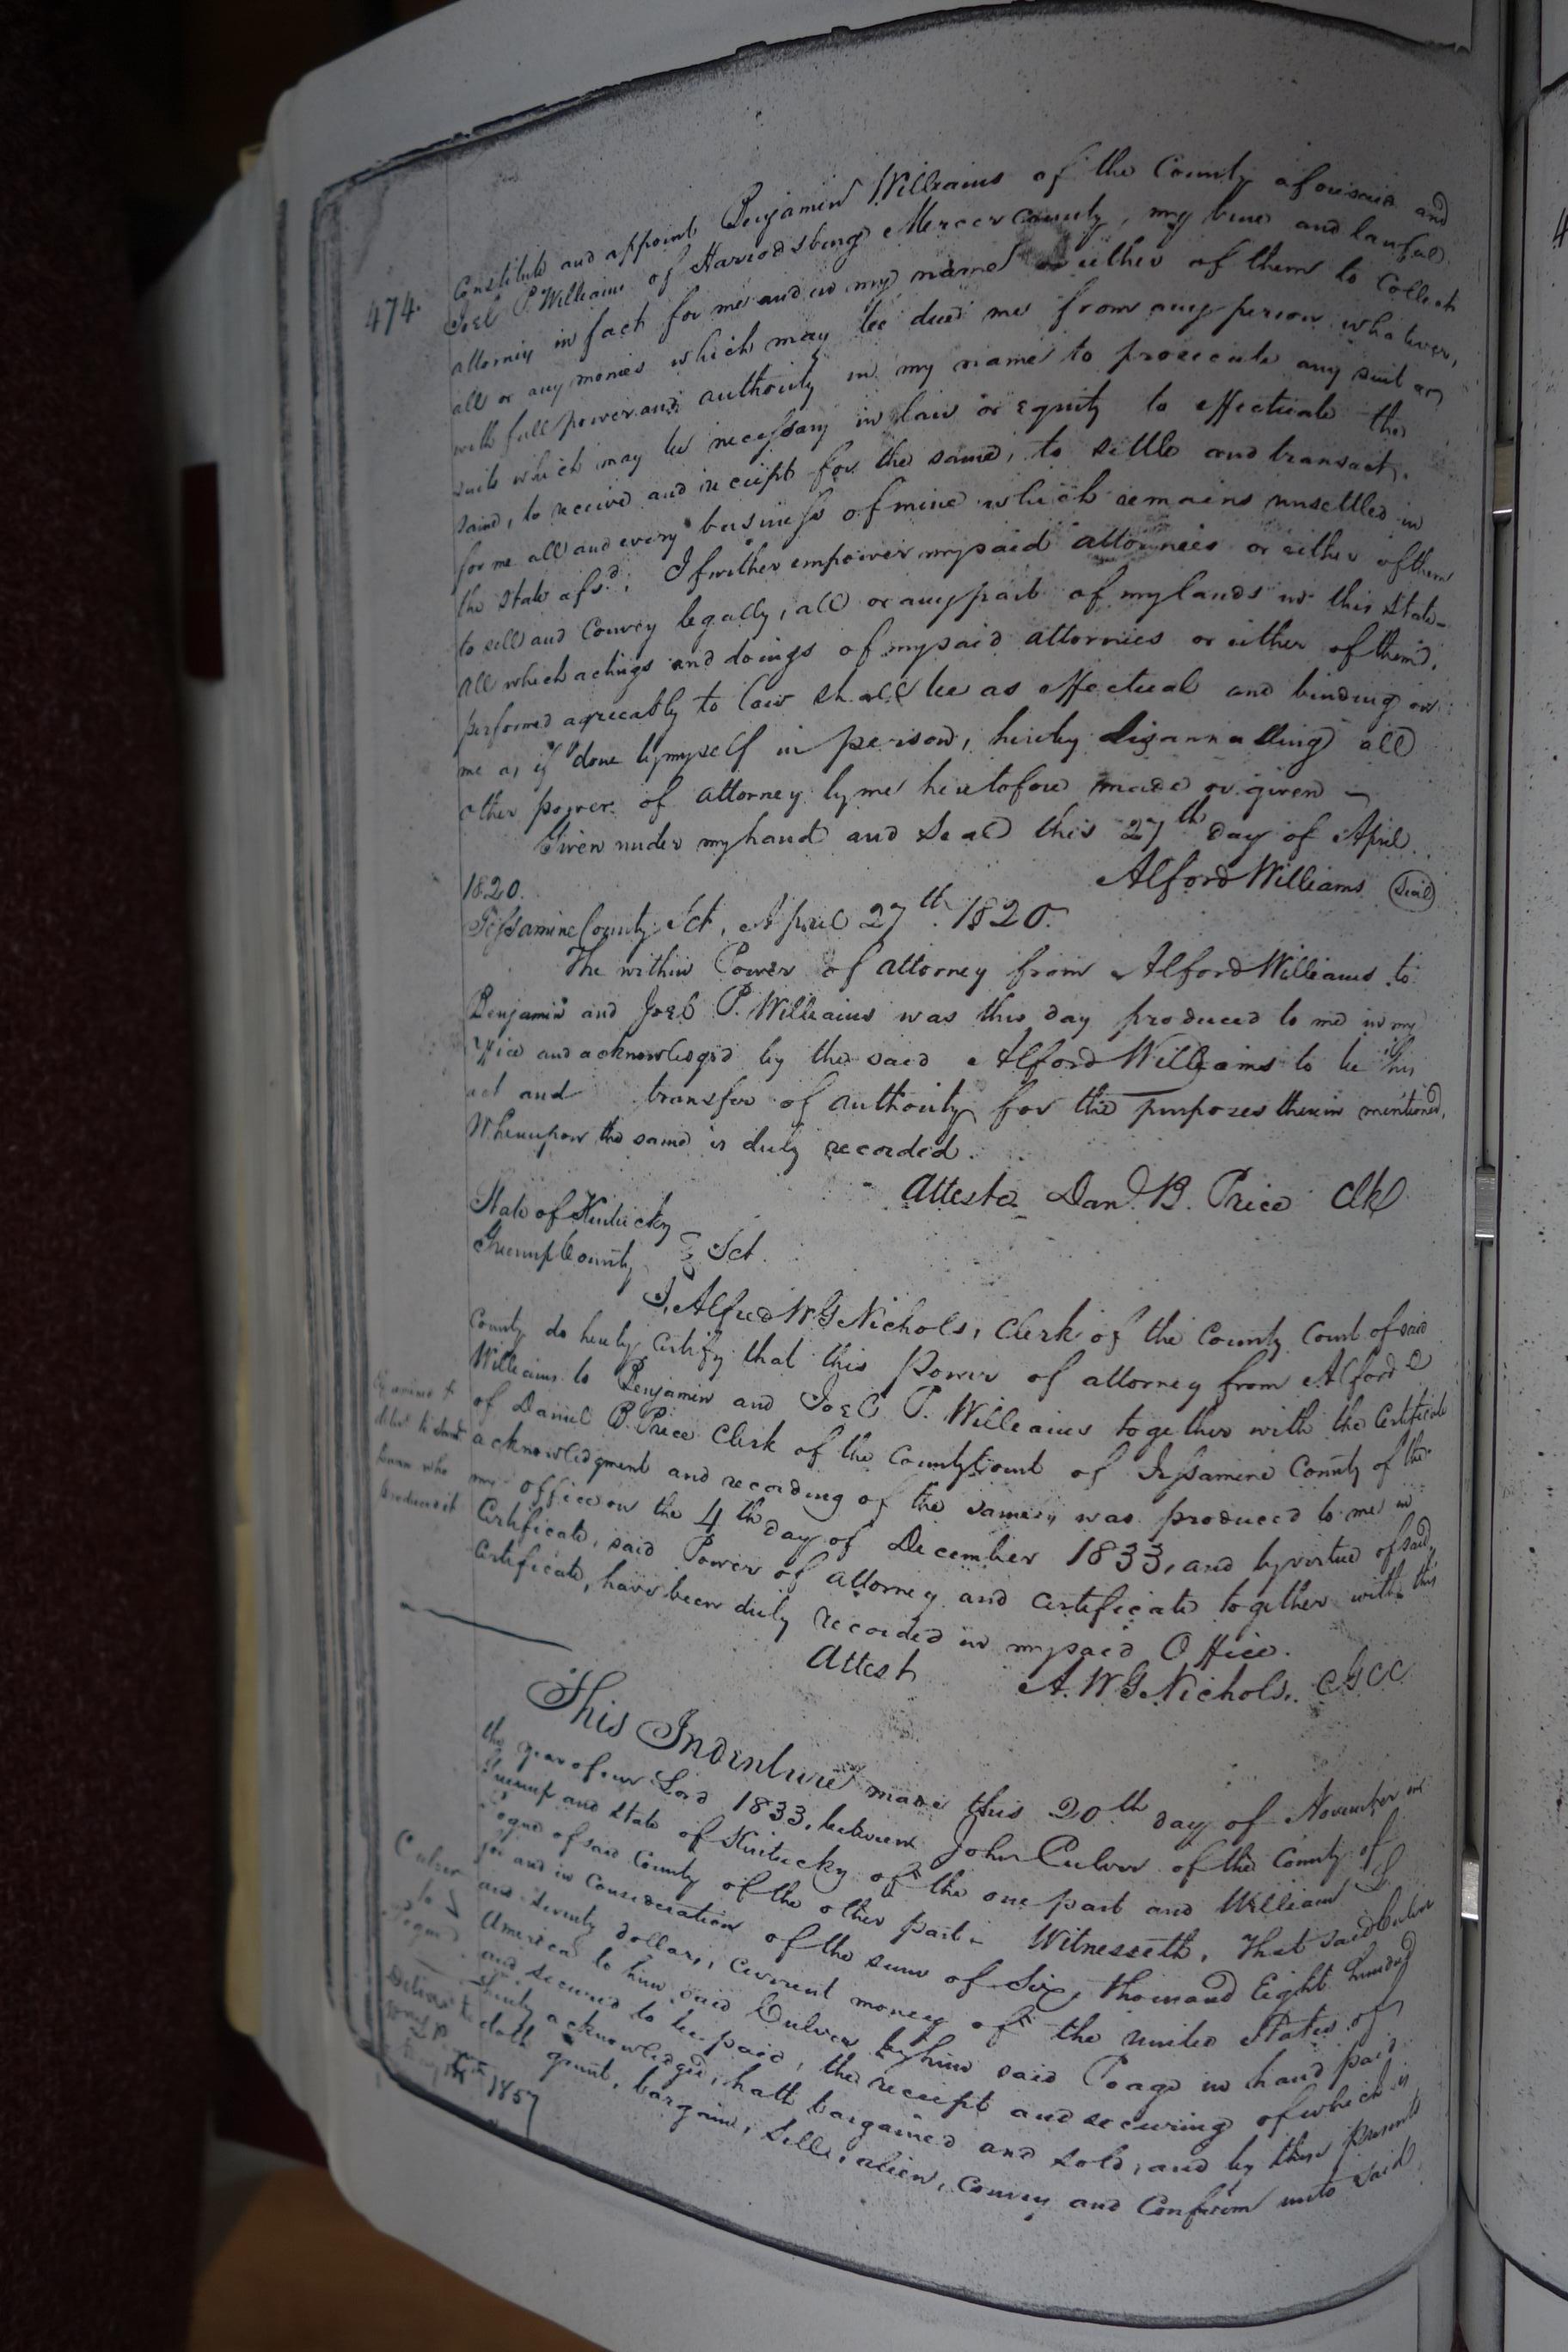 474.
Constitute and appoint, Benjamin Williams of the County aforesaid and
Joel P. Williams of Harrodsburg Mercer County, my true and lawful
attorniy in fact for me and in my name or either of them to Collect
all or any monies which may be due me from any person whatever,
with full power and authority in my name to prosecute any suit or
suits which may be necessary in law or equity to effectuate the
same, to receive and receipt for the same, to settle and transact,
for me all and every business of mine which remains unsettled in
the State afsd; I further empower my said attornies or either of them
to sell and Convey legally, all or any part of my lands in this State-
All which actings and doings of my said attornies or either of them,
performed agreeably to law shall be as effectual and binding on
me as if done by myself in person, hereby disannulling all
other power of attorney by me heretofore made or given -
Given under my hand and Seal this 27th day of April
1820.
Alford Williams (Seal)
Jessamine County Sct, April 27th. 1820.
The within Power of attorney from Alford Williams to
Benjamin and Joel P. Williams was this day produced to me in my
office and acknowledged by the said Alford Williams to be his
act and transfer of authority for the purposes therein mentioned,
Whereupon the same is duly recorded.
Atteste Danl. B. Price Clk
State of Kentucky
Greenup County } Sct.
I, Alfred W G Nichols, Clerk of the County Court of said
County do hereby Certify that this Power of attorney from Alford
Williams to Benjamin and Joel P. Williams together with the Certificate
of Daniel B. Price Clerk of the County Court of Jessamine County of the
acknowledgment and recording of the same, was produced to me in
my office on the 4th day of December 1833, and by virtue of said
Certificate, said Power of attorney and Certificate together with this
Certificate, have been duly recorded in my said Office.
Attest A. W G Nichols. C G C C
Examined &
man who
produced it
This Indenture made this 20th day of November in
the year of our Lord 1833, between John Culver of the County of
Greenup and State of Kentucky of the one part and William
Pogue of said County of the other part - Witnesseth, That said Culver
for and in Consideration of the sum of Six, thousand Eight hundred
and seventy dollars, current money of the united States of
America to him said Culver by him said Poage in hand paid
and secured to be paid, the receipt and securing of which is
hereby acknowledged, hath bargained and sold, and by these presents
doth grant, bargain, Sell, alien, Convey and Confirm unto said
Culver
to
1857